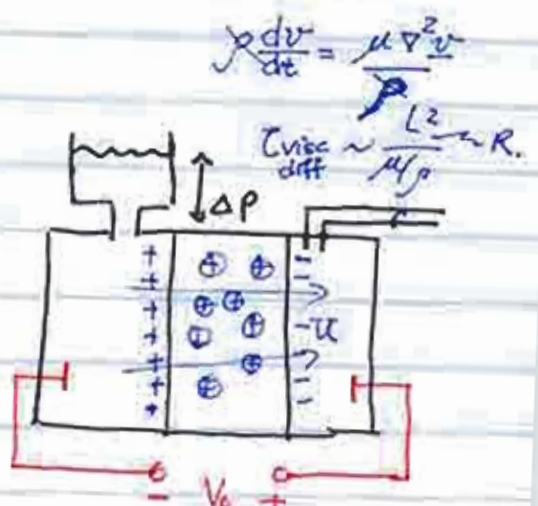 ρ dv/dt = μ∇²v / ρ
τ visc diff ~ L² / μ/ρ ~ R.
ΔP
+ ⊕ ⊕ -
+ ⊕ ⊕ -
+ ⊕ ⊕ - U
+ ⊕ -
+ ⊕ -
+
- V₀ +